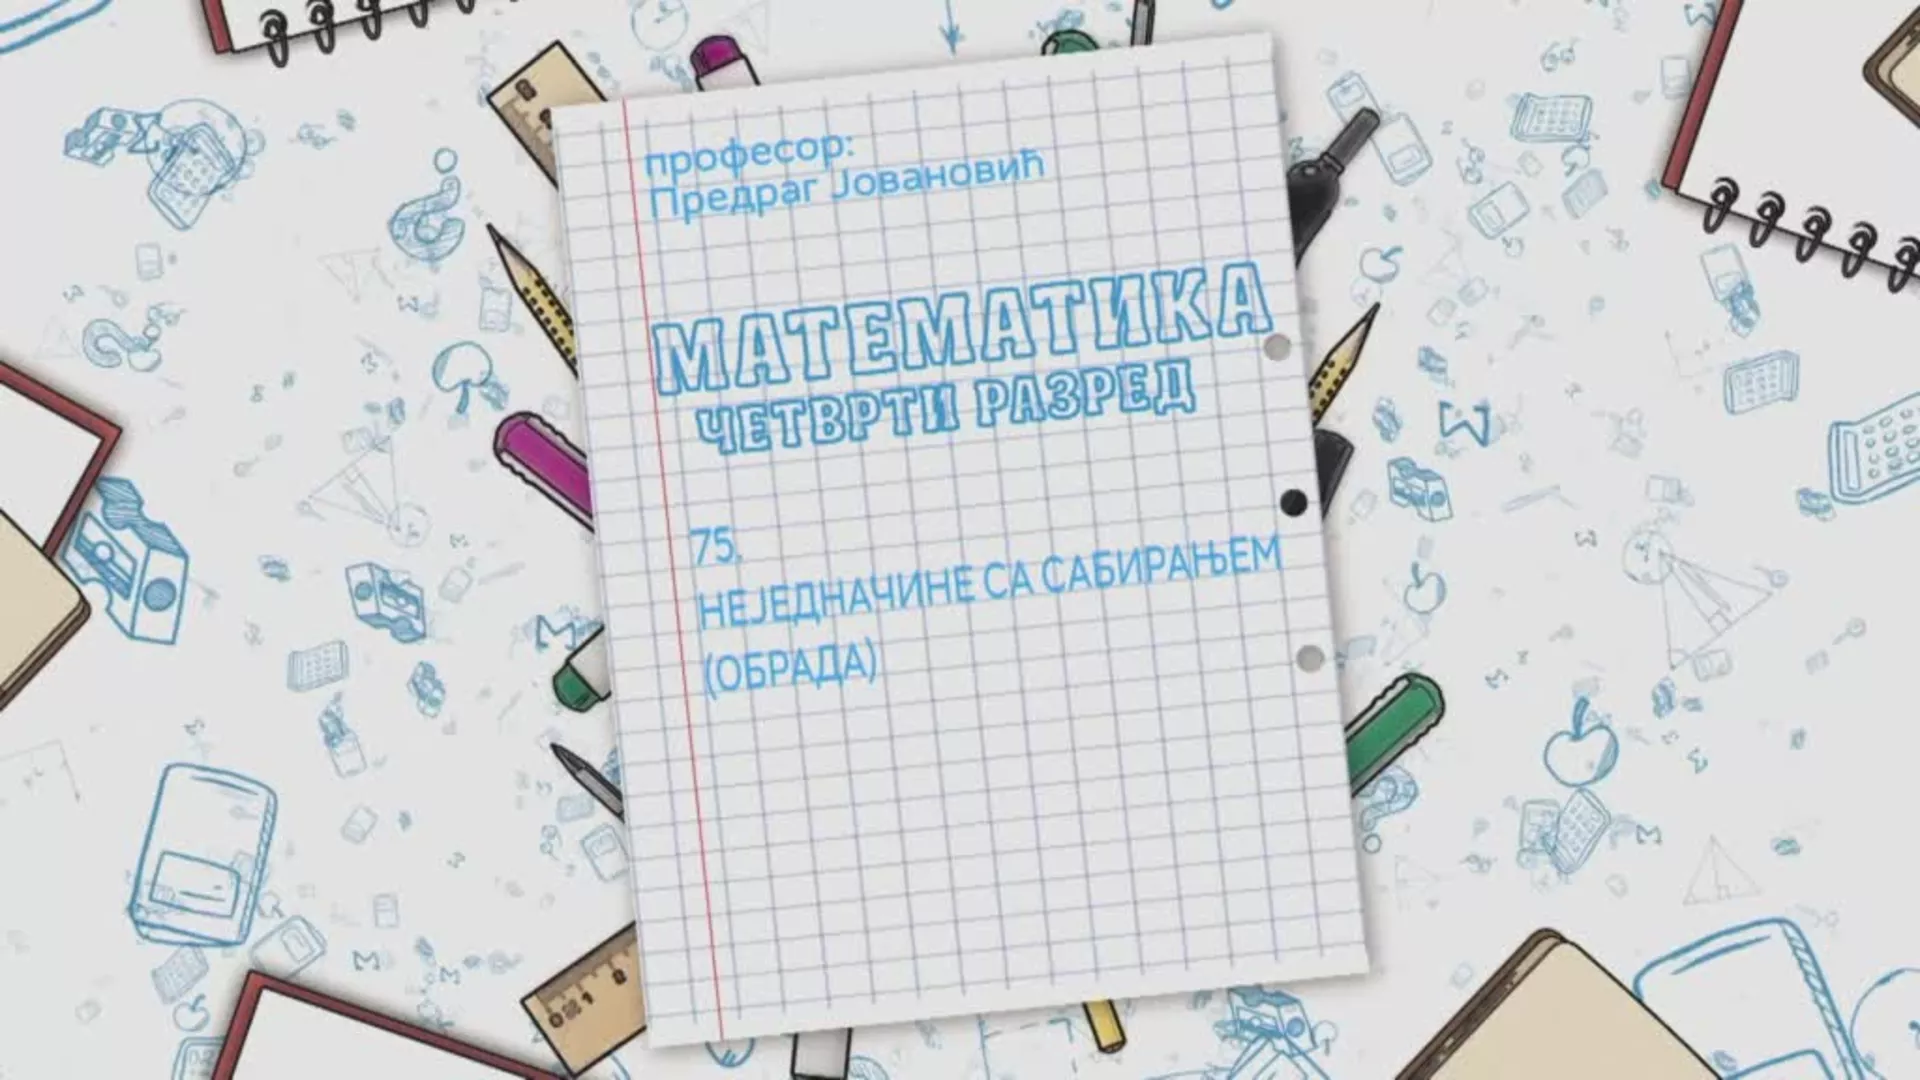 професор:
Предраг Јовановић
МАТЕМАТИКА
ЧЕТВРТИ РАЗРЕД
75.
НЕЈЕДНАЧИНЕ СА САБИРАЊЕМ
(ОБРАДА)